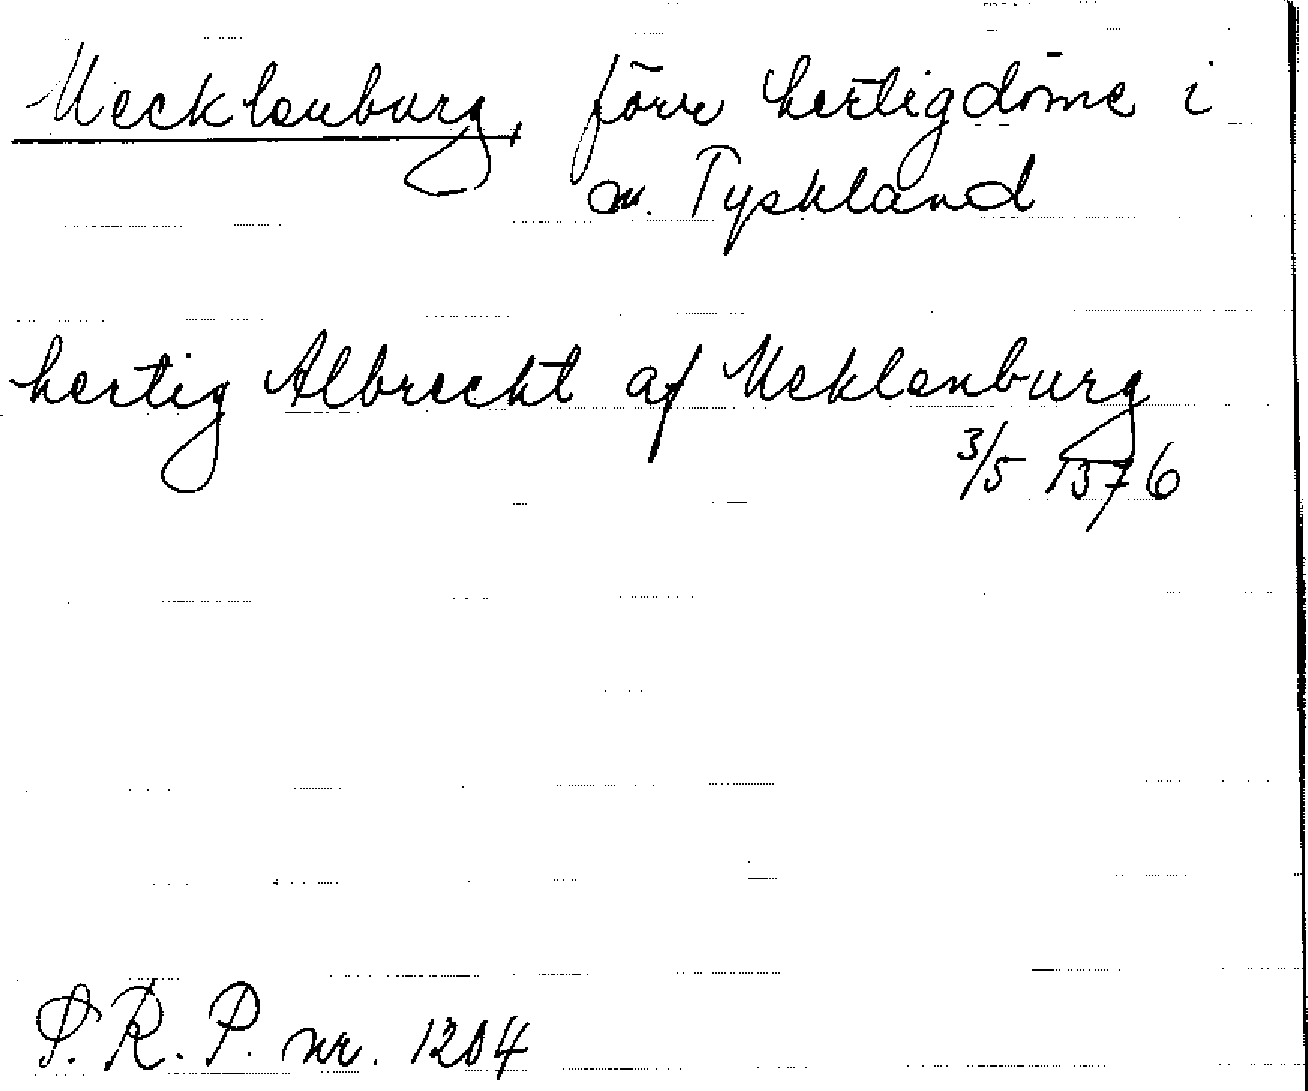 Mecklenburg, förr hertigdöme i
n. Tyskland
hertig Albrecht af Meklenburg
3/5 1376
S.R.P. nr. 1204